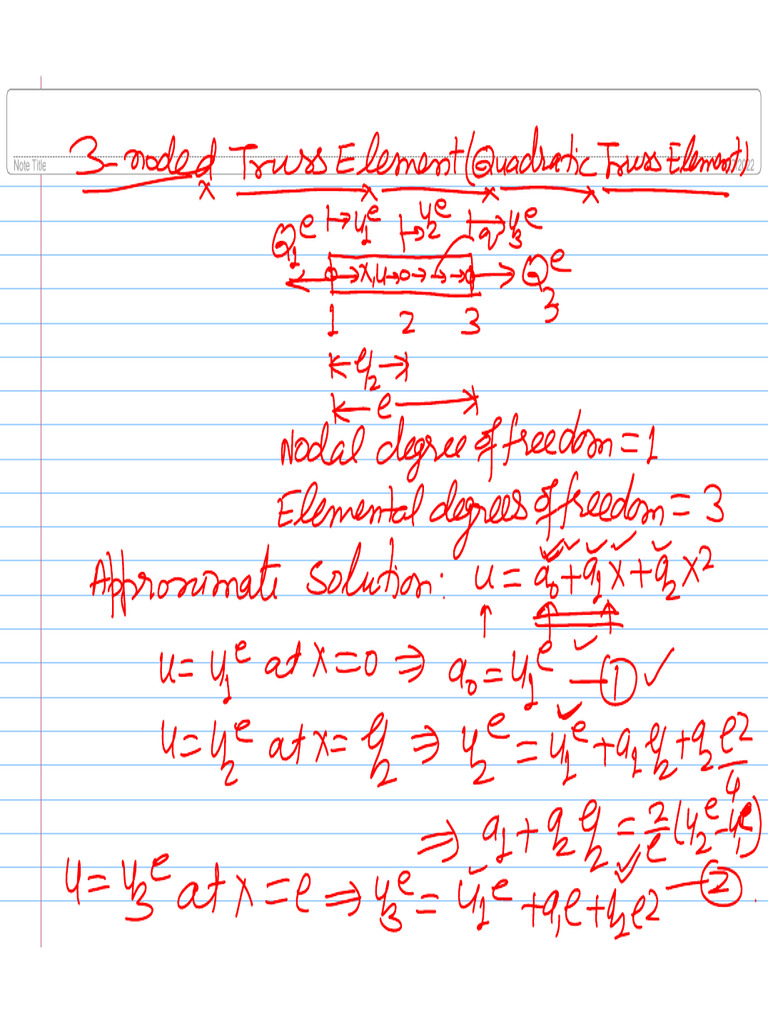 Note Title
3-noded Truss Element (Quadratic Truss Element)
Q₁ᵉ u₁ᵉ u₂ᵉ q u₃ᵉ
x,u Q₃ᵉ
1 2 3
l/2
l
Nodal degree of freedom = 1
Elemental degrees of freedom = 3
Approximate solution: u = a₀ + a₁x + a₂x²
u = u₁ᵉ at x = 0 ⇒ a₀ = u₁ᵉ — ① ✓
u = u₂ᵉ at x = l/2 ⇒ u₂ᵉ = u₁ᵉ + a₁ l/2 + a₂ l²/4
⇒ a₁ + a₂ l/2 = 2/l (u₂ᵉ - u₁ᵉ) — ②
u = u₃ᵉ at x = l ⇒ u₃ᵉ = u₁ᵉ + a₁l + a₂l²